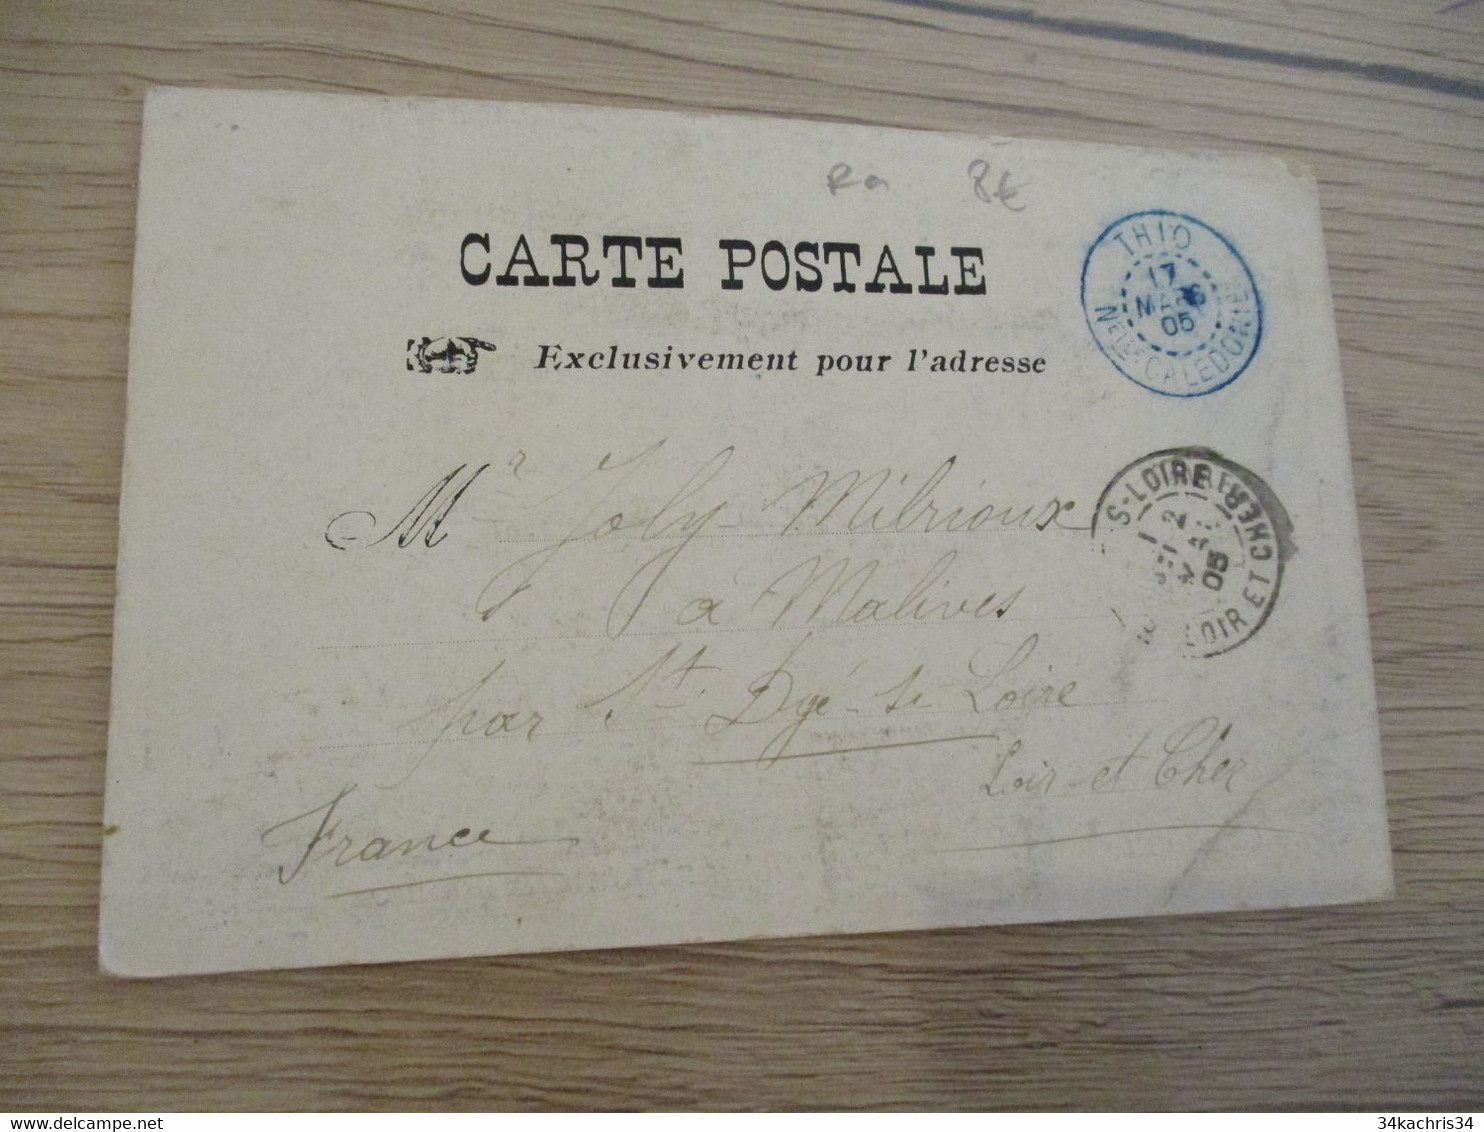 8€
CARTE POSTALE
Exclusivement pour l'adresse
THIO
17
MARS
05
NELLE-CALEDONIE
Mr Joly-Milrioux
à Malives
par St Dyé-s-Loire
Loir-et-Cher
France
S-LOIRE
05
LOIR ET CHER
delcampe.net
34kachris34